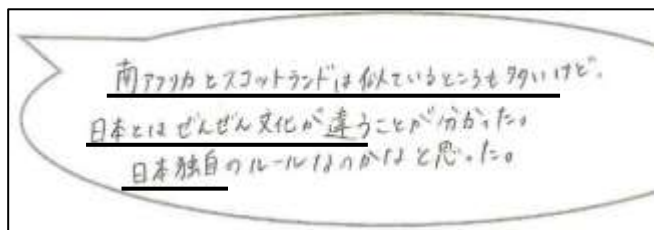 南アフリカとスコットランドは似ているところも多いけど、
日本とはぜんぜん文化が違うことが分かった。
日本独自のルールなのかなと思った。